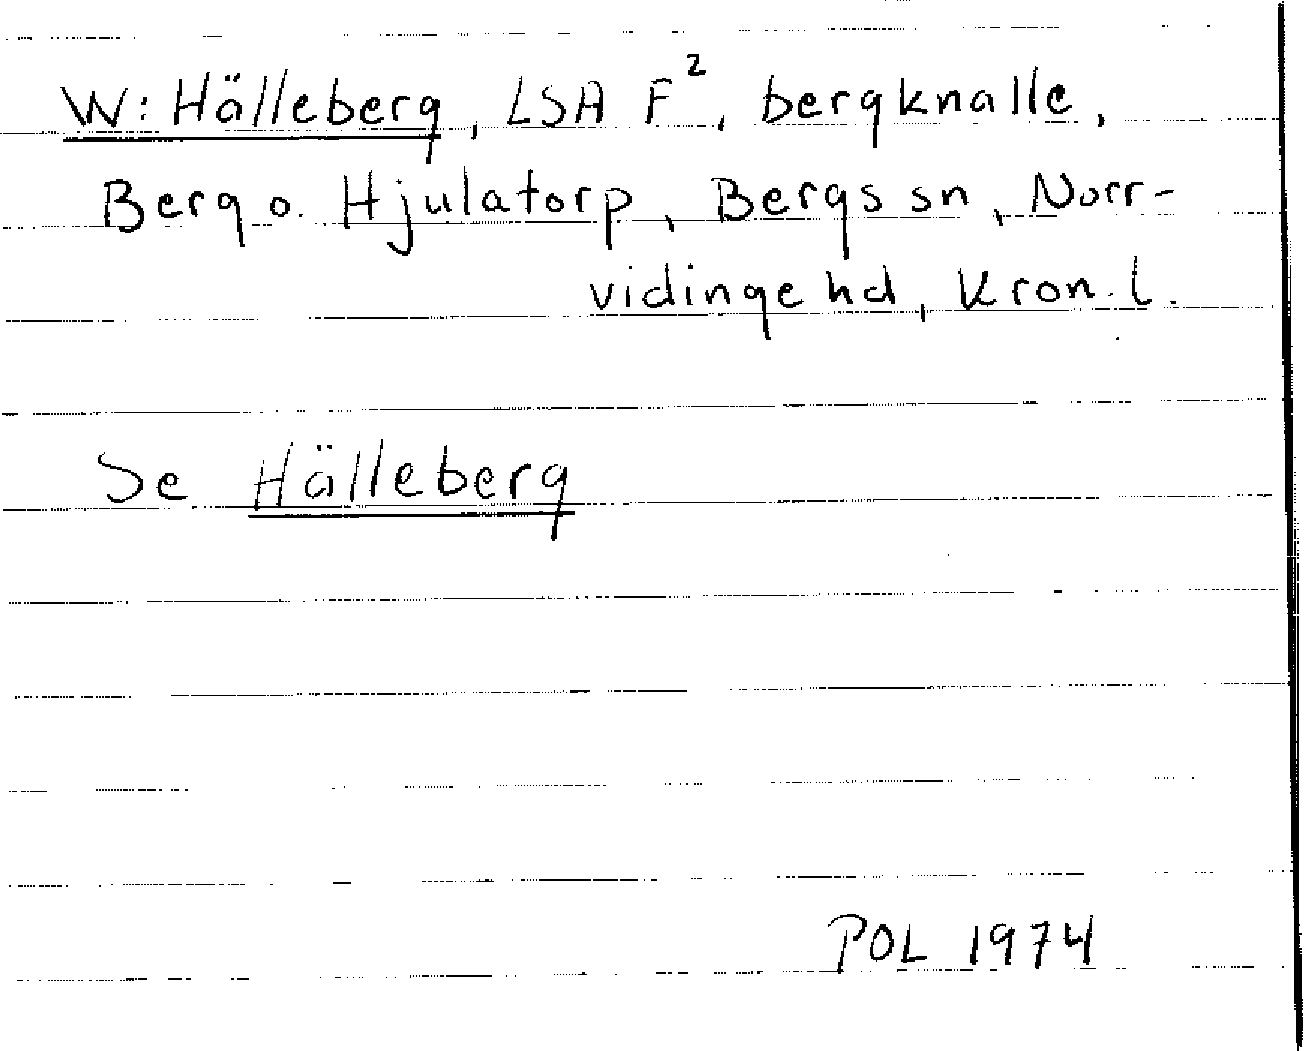 W: Hälleberg, LSA F², bergknalle,
Berg o. Hjulatorp, Bergs sn, Norr-
vidinge hd, Kron. l.
Se Hälleberg
POL 1974